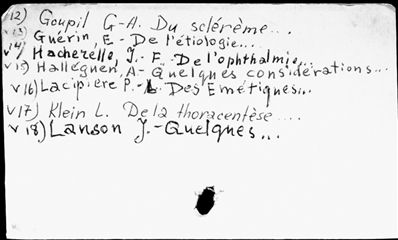 12) Goupil G-A. Du sclérème...
v 13) Guérin, E - De l'étiologie...
v 14) Hacherelle, J. F. De l'ophthalmie...
v 15) Hallégnen, A- Quelques considérations...
v 16) Lacipière P. - Des Emétiques...
v 17) Klein L. De la thoracentèse....
v 18) Lanson J.- Quelques...